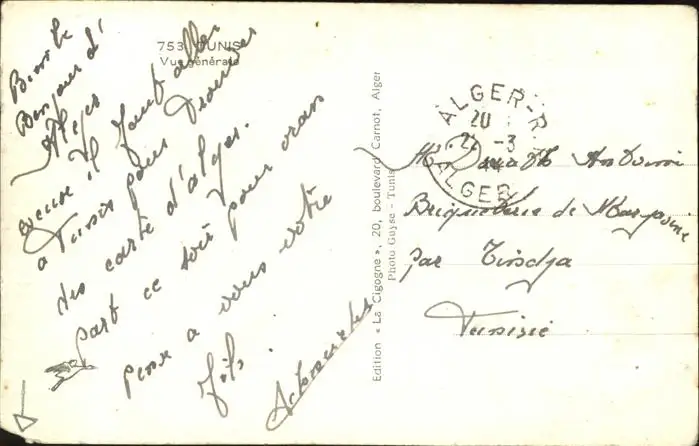 753 TUNIS
Vue générale
Bonjour d'
il faut aller
a Tunis pour trouver
des carte d'alger.
part ce soir pour oran
pense a vous votre
fils.
Edition « La Cigogne », 20, boulevard Carnot, Alger
Photo Guyse - Tunis
ALGER-R.
20
2 -3
44
ALGER
Briqueterie de
par Tindja
Tunisie